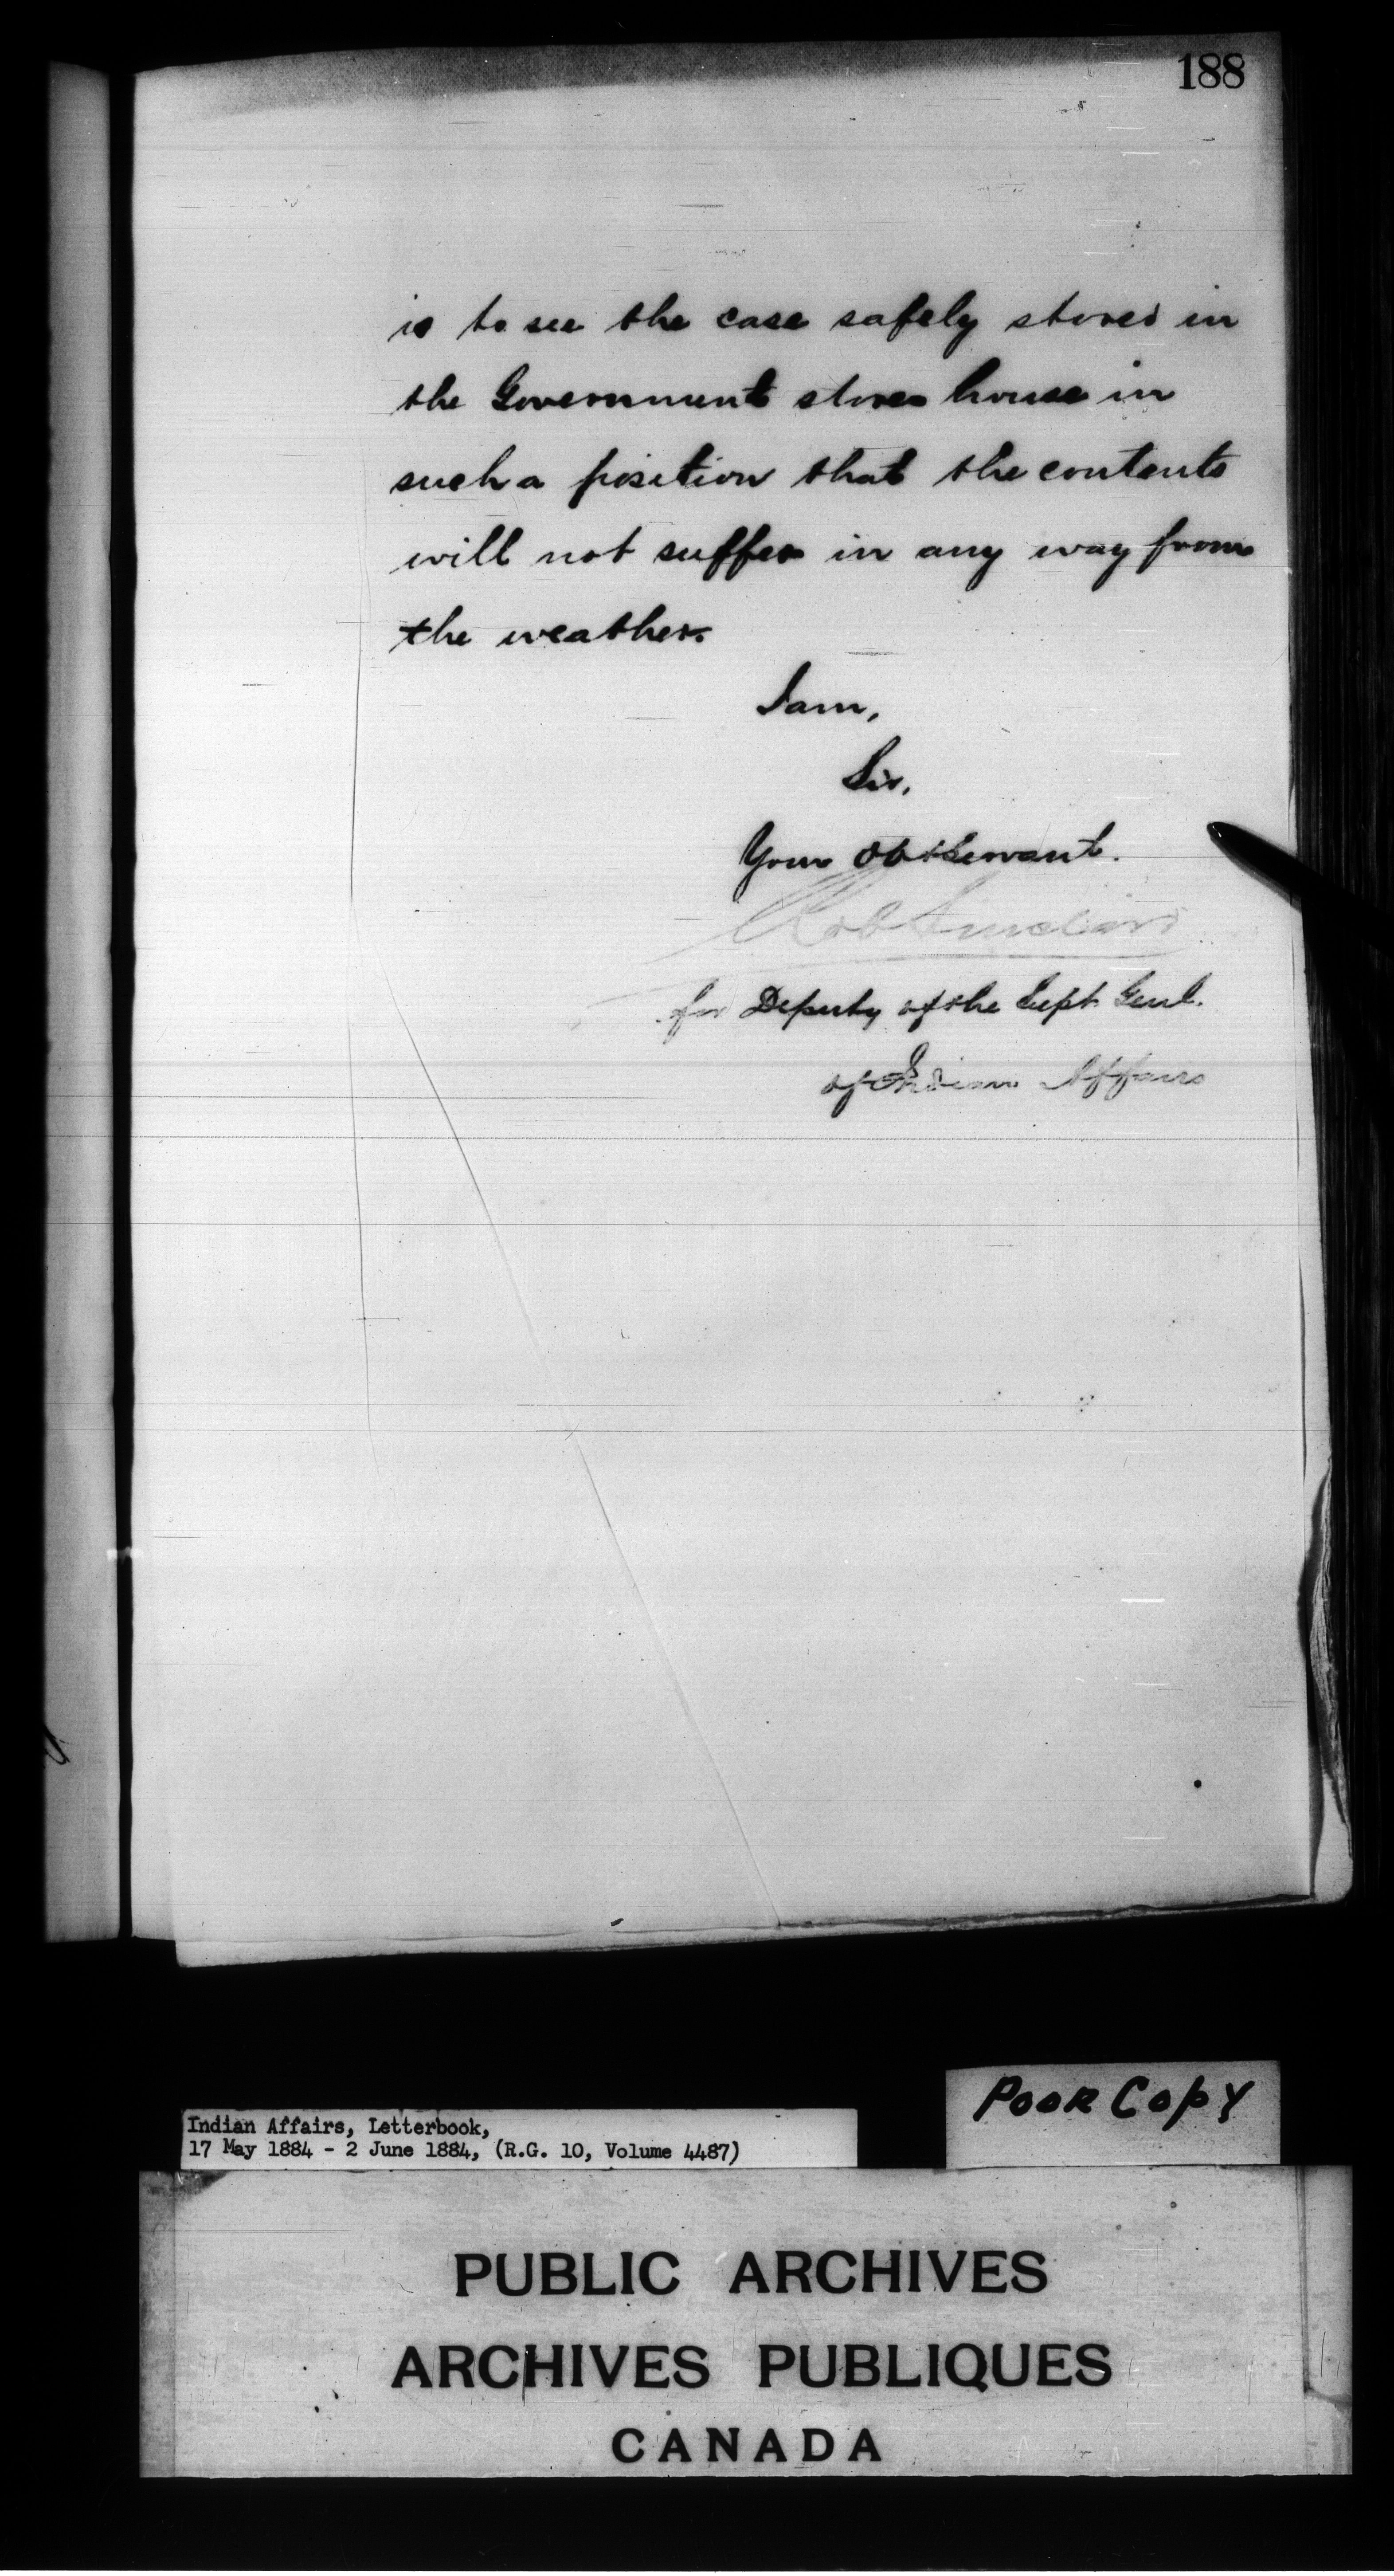 188
is to see the case safely stored in
the Government stores house in
such a position that the contents
will not suffer in any way from
the weather.
I am,
Sir,
Your obt servant.
Rob Sinclair
for Deputy of the Supt. Genl.
of Indian Affairs
POOR COPY
Indian Affairs, Letterbook,
17 May 1884 - 2 June 1884, (R.G. 10, Volume 4487)
PUBLIC ARCHIVES
ARCHIVES PUBLIQUES
CANADA